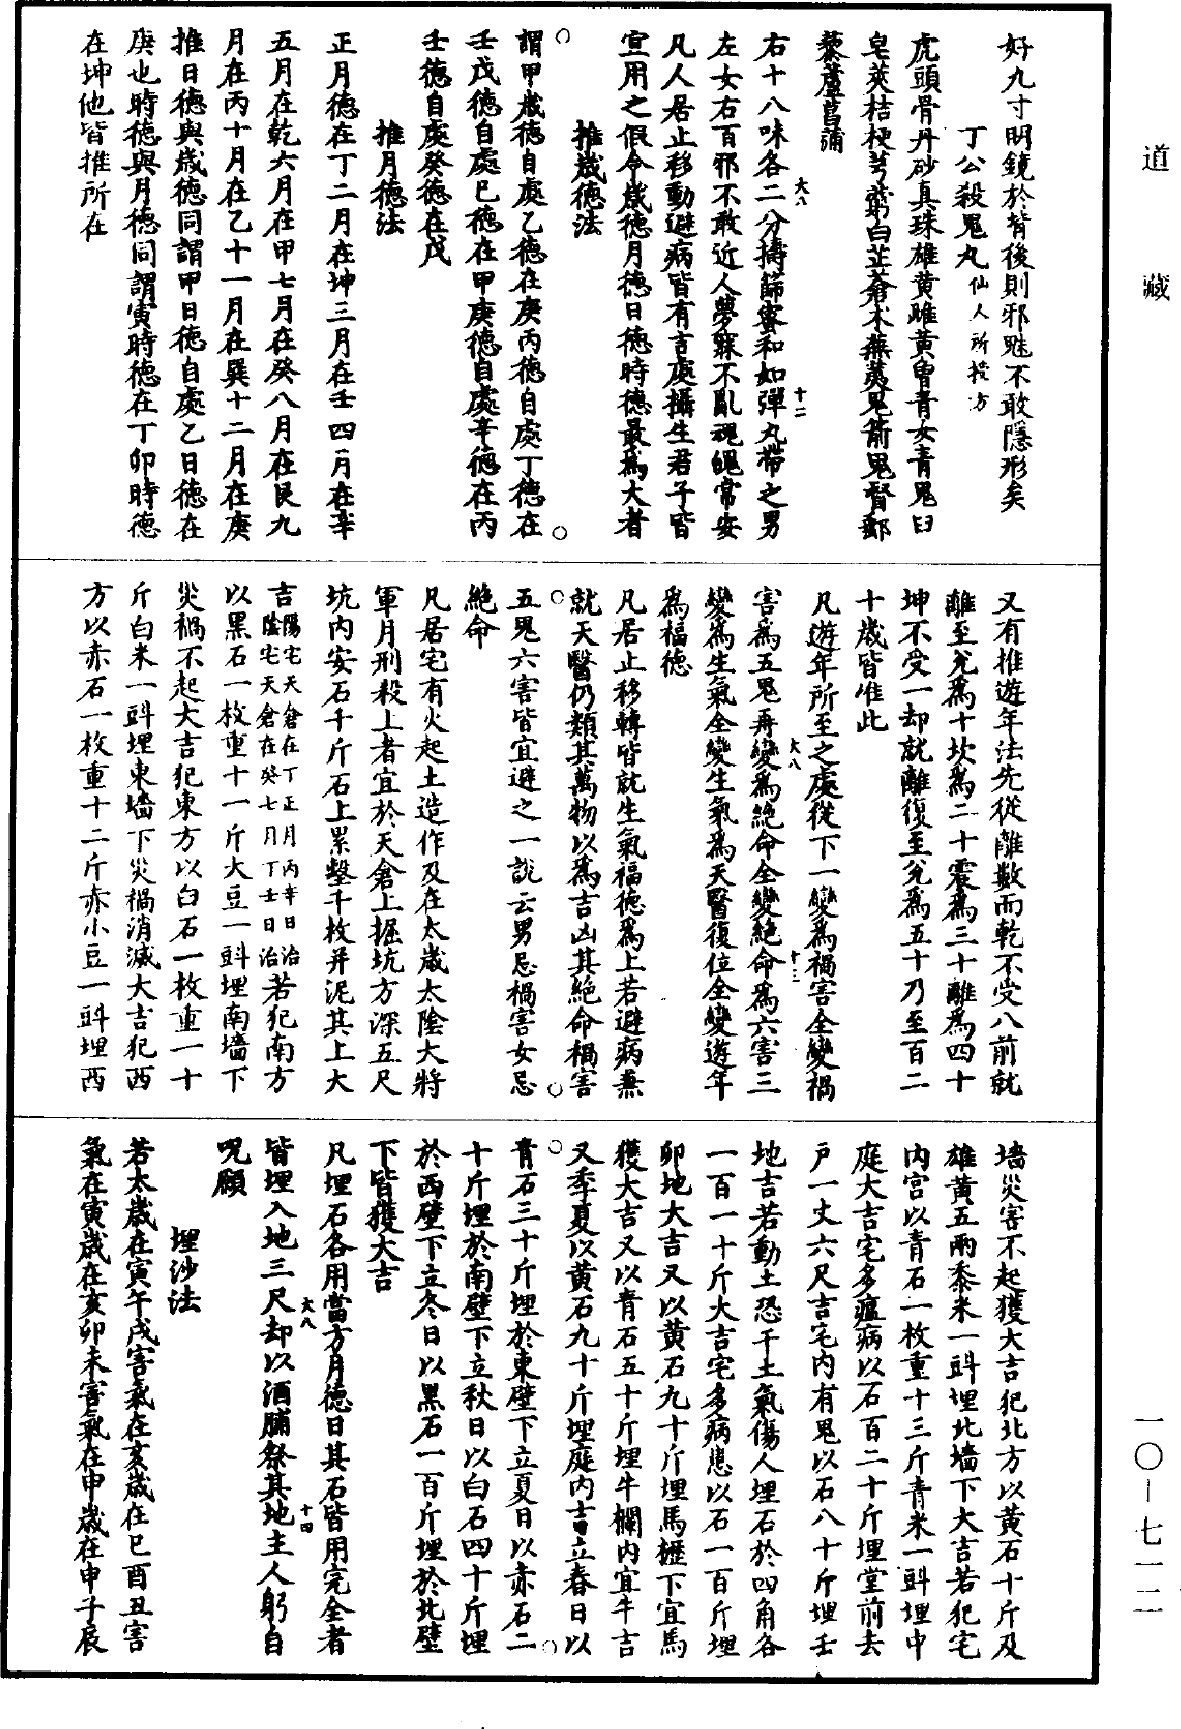 道藏
好九寸明鏡於背後則邪魅不敢隱形矣
丁公殺鬼丸仙人所授方
虎頭骨丹砂真珠雄黃雌黃曾青女青鬼臼
皂莢桔梗芎藭白芷蒼朮蕪荑鬼箭鬼督郵
藜蘆菖蒲
右十八味各二分擣篩蜜和如彈丸帶之男
左女右百邪不敢近人夢寐不亂魂魄常安
凡人居止移動避病皆有吉處攝生君子皆
宜用之假令歲德月德日德時德最為大者
推歲德法
謂甲歲德自處乙德在庚丙德自處丁德在
壬戊德自處己德在甲庚德自處辛德在丙
壬德自處癸德在戊
推月德法
正月德在丁二月在坤三月在壬四月在辛
五月在乾六月在甲七月在癸八月在艮九
月在丙十月在乙十一月在巽十二月在庚
推日德與歲德同謂甲日德自處乙日德在
庚也時德與月德同謂寅時德在丁卯時德
在坤他皆推所在
又有推遊年法先從離數而乾不受八前就
離至兌為十坎為二十震為三十離為四十
坤不受一却就離復至兌為五十乃至百二
十歲皆准此
凡遊年所至之處從下一變為禍害全變禍
害為五鬼再變為絕命全變絕命為六害三
變為生氣全變生氣為天醫復位全變遊年
為福德
凡居止移轉皆就生氣福德為上若避病兼
就天醫仍類其萬物以為吉凶其絕命禍害
五鬼六害皆宜避之一說云男忌禍害女忌
絕命
凡居宅有火起土造作及在太歲太陰大將
軍月刑殺上者宜於天倉上掘坑方深五尺
坑內安石千斤石上累墼千枚并泥其上大
吉陽宅天倉在丁正月丙辛日治陰宅天倉在癸七月丁壬日治若犯南方
以黑石一枚重十一斤大豆一㪷埋南墻下
災禍不起大吉犯東方以白石一枚重一十
斤白米一㪷埋東墻下災禍消滅大吉犯西
方以赤石一枚重十二斤赤小豆一㪷埋西
墻災害不起獲大吉犯北方以黃石十斤及
雄黃五兩黍米一㪷埋北墻下大吉若犯宅
內宮以青石一枚重十三斤青米一㪷埋中
庭大吉宅多瘟病以石百二十斤埋堂前去
戶一丈六尺吉宅內有鬼以石八十斤埋壬
地吉若動土恐干土氣傷人埋石於四角各
一百一十斤大吉宅多病患以石一百斤埋
卯地大吉又以黃石九十斤埋馬櫪下宜馬
獲大吉又以青石五十斤埋牛欄內宜牛吉
又季夏以黃石九十斤埋庭內吉立春日以
青石三十斤埋於東壁下立夏日以赤石二
十斤埋於南壁下立秋日以白石四十斤埋
於西壁下立冬日以黑石一百斤埋於北壁
下皆獲大吉
凡埋石各用當方月德日其石皆用完全者
皆埋入地三尺却以酒脯祭其地主人躬自
呪願
埋沙法
若太歲在寅午戌害氣在亥歲在巳酉丑害
氣在寅歲在亥卯未害氣在申歲在申子辰
大八
十二
大八
十三
大八
十四
一〇—七一二